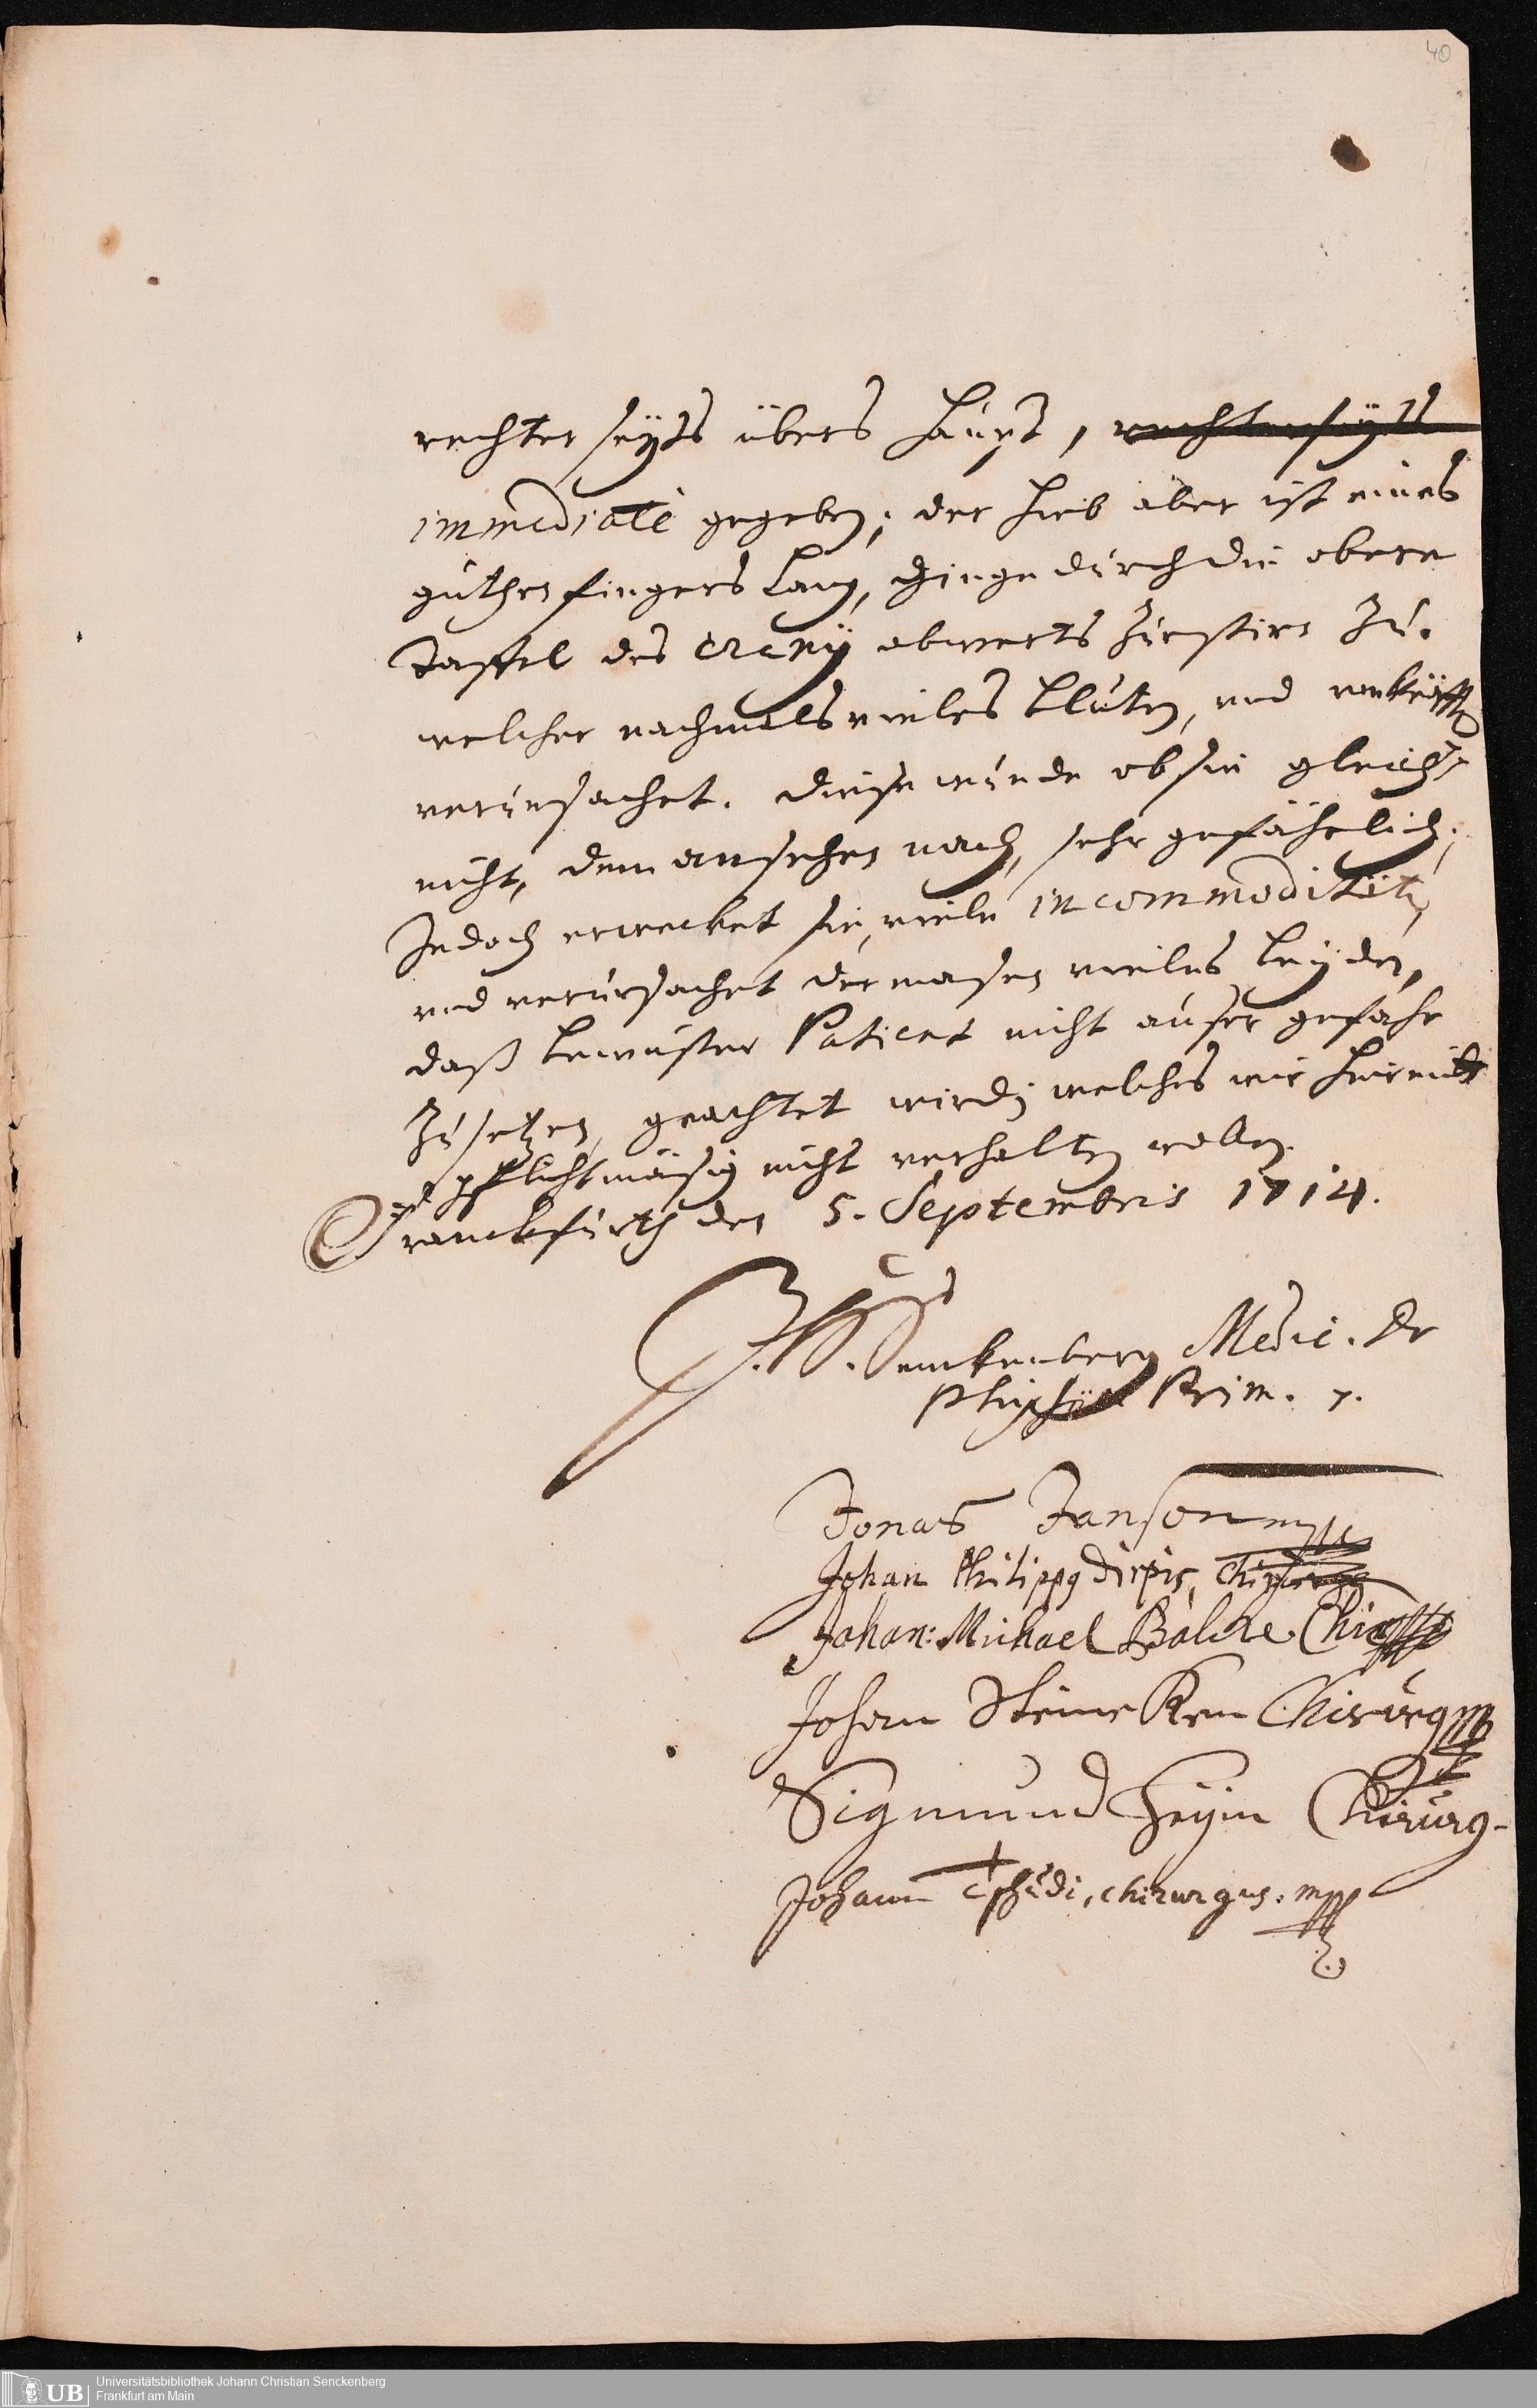 40
rechter seÿts übers haupt, rechterseÿts
immediatè gegeben; der hieb aber ist eines
guthen fingers lang, ginge durch die obere
taffel des cranÿ abwerts zur stirn zu.
welcher nachmals vieles bluten, und
verursachet. diese wunde ob sie gleich
nicht, dem ansehen nach, sehr gefährlich;
Jedoch erwecket sie, viele incommoditäten,
und verursachet dermasen vieles leÿden,
daß bewuster Patient nicht auser gefahr
zu setzen, geachtet wird; welches wir hiermit
pflichtmäsig nicht verhalten wollen.
Franckfurth den 5. Septembris 1714.
J. H. Senckenberg Medic. Dr
Prim.
Jonas Janson mp
Johan Philippg
Johan: Michael Balcke Chir
Johan Chirurg
Sigmund Heÿm Chirurg.
Johann Tschudi, chirurgus. mp
UB
Universitätsbibliothek Johann Christian Senckenberg
Frankfurt am Main